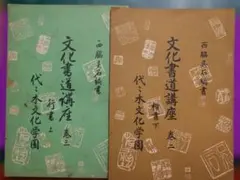 西脇呉石書
文化書道講座 巻二
下
代々木文化学園
西脇呉石書
文化書道講座 巻三
行書 上
代々木文化学園